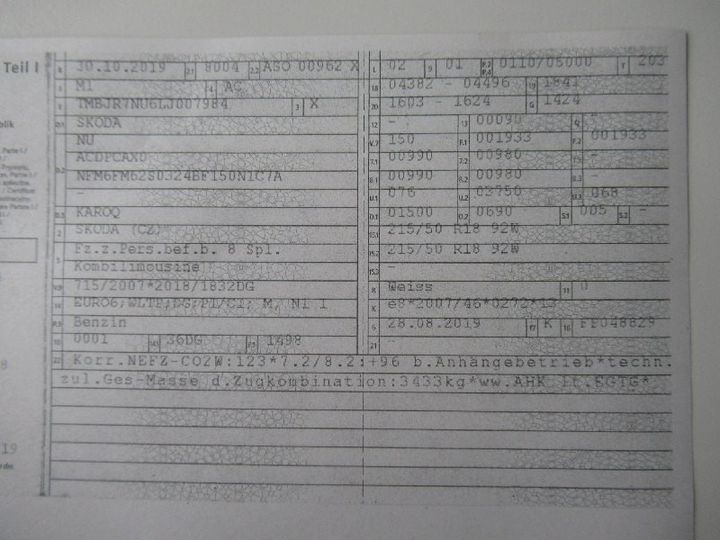 Teil I
B 30.10.2019 2.1 8004 2.2 ASO 00962 X
J M1 4 AC
E TMBJR7NU6LJ007984 3 X
D.1 SKODA
D.2 NU
ACDPCAX0
NFM6FM62S0324BF150N1C7A
-
D.3 KAROQ
2 SKODA (CZ)
5 Fz.z.Pers.bef.b. 8 Spl.
Kombilimousine
V.9 715/2007*2018/1832DG
14 EURO6;WLTP;DG;PI/CI; M, N1 I
P.3 Benzin
10 0001 14.1 36DG P.1 1498
L 02 9 01 P.2 P.4 0110/05000 T 203
18 04382 - 04496 19 1841
20 1603 - 1624 G 1424
12 - 13 00090 Q -
V.7 150 F.1 001933 F.2 001933
7.1 00990 7.2 00980 7.3 -
8.1 00990 8.2 00980 8.3 -
U.1 076 U.2 03750 U.3 068
O.1 01500 O.2 0690 S.1 005 S.2 -
15.1 215/50 R18 92W
15.2 215/50 R18 92W
15.3 -
R Weiss 11 0
K e8*2007/46*0272*13
6 28.08.2019 17 K 16 FF048829
21 -
22 Korr.NEFZ-CO2W:123*7.2/8.2:+96 b.Anhängebetrieb*techn.
zul.Ges-Masse d.Zugkombination:3433kg*ww.AHK lt.EGTG*